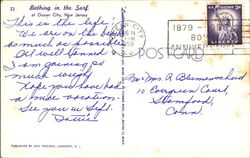 23 Bathing in the Surf
at Ocean City, New Jersey
This is the life.
We are on the beach
so much as possible
All well tanned
I am gaining so
much weight
Hope you have had
a nice vacation
See you in Sept.
POST CARD
1879 -
80
ANNIVER
LIBERTY
3¢
Mr. & Mrs. A. Blumenscheid
10 Evergreen Court,
Stamford,
Conn.
PUBLISHED BY JACK FREEMAN, LONGPORT, N. J.